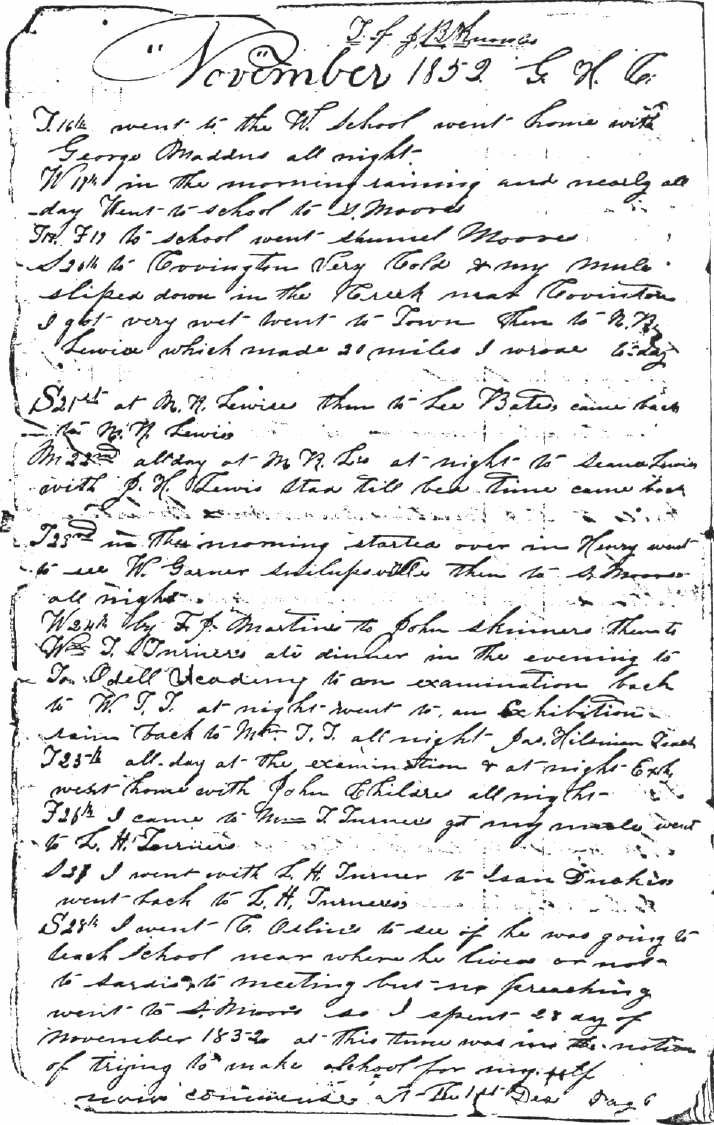 "November" 1852 G. H. C.
T. 16th went to the W. School went home with
George Maddus all night
W 17th in the morning raining and nearly all
day Went to school to S. Moores
F 19 to school went Samuel Moores
S 20th to Covington Very Cold & my mule
sliped down in the Creek near Covinton
I got very wet went to Town then to N. R.
Lewise which made 20 miles I wrode to-day
S 21st at N. R. Lewises then to Lee Bates came back
to N. R. Lewis
M 22nd all day at N. R. Ls at night to Lewis
with J. H. Lewis staid till bed time came back
T 23rd in the morning started over in Henry went
to see W. Garner then to S. Moores
all night.
W 24th by F. J. Martins to John Skinners then to
Wm T. Turners ate dinner in the evening to
Odell Academy to an examination back
to W. T. T. at night went to an Exhibition
back to Wm T. T. all night Jas. Hilsman
T 25th all-day at the examination & at night Exh.
went home with John Childres all night
F 26th I came to Wm T Turners got my mule went
to L. H. Turners
S 27 I went with L. H. Turner to
went back to L. H. Turners
S 28th I went to see if he was going to
teach School near where he lived or not
to Sardis to meeting but no preaching
went to S. Moors so I spent 28 day of
November 1852 at this time was in the notion
of trying to make a School for my self
commense at the 1st Dec Pag 6